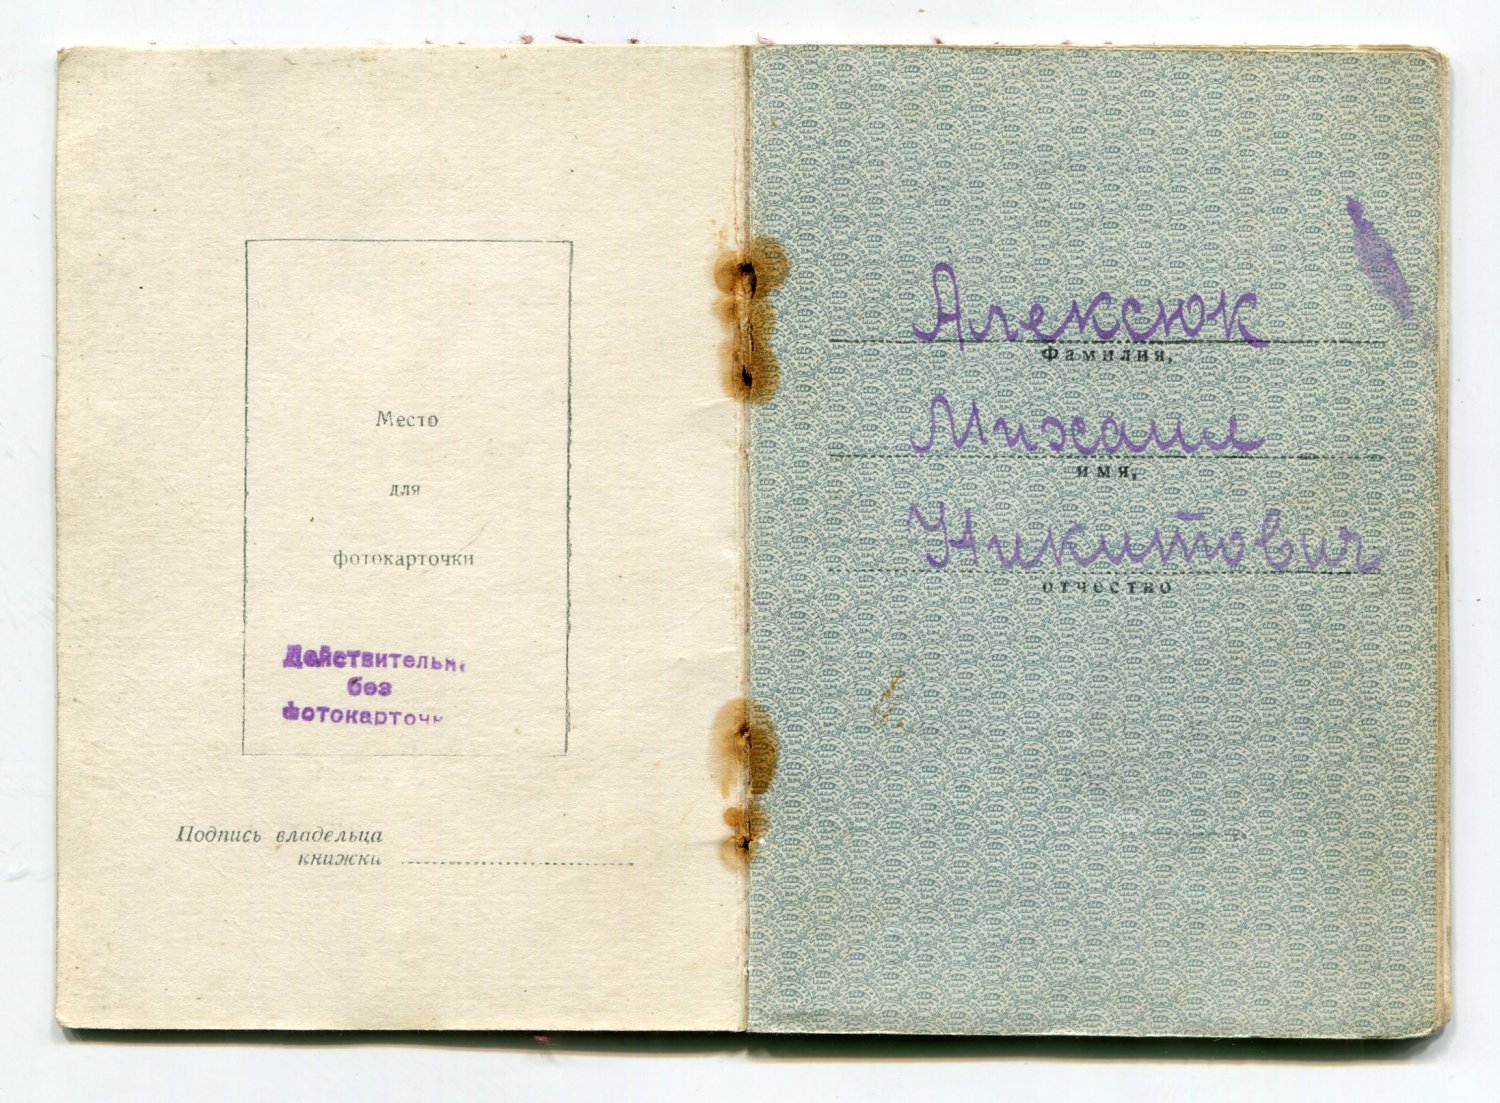 Место
для
фотокарточки
Действительн
без
фотокарточк
Подпись владельца
книжки
Алексюк
Фамилия,
Михаил
имя,
Никитович
отчество